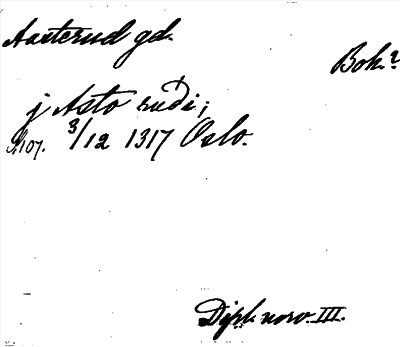 Aasterud gd.
Bok.?
j Asto rudi;
N107. 3/12 1317 Oslo.
Dipl. norv. III.